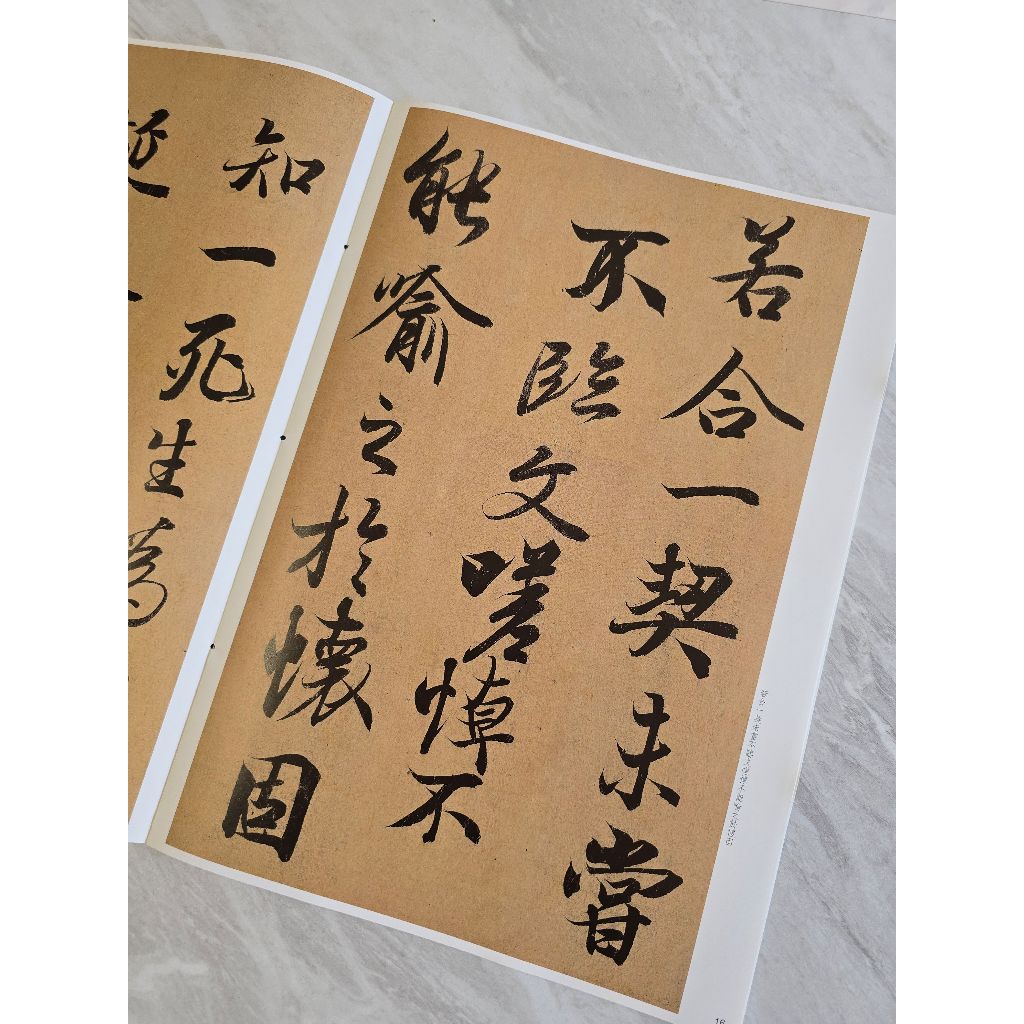 若合一契未嘗
不臨文嗟悼不
能喻之於懷固
知一死生為